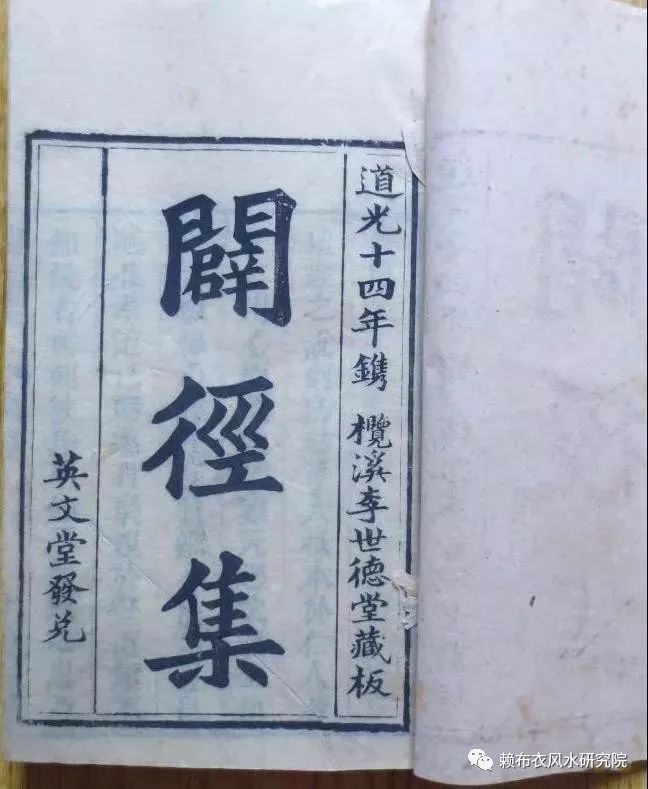 道光十四年鐫 欖溪李世德堂藏板
闢徑集
英文堂發兑
赖布衣风水研究院